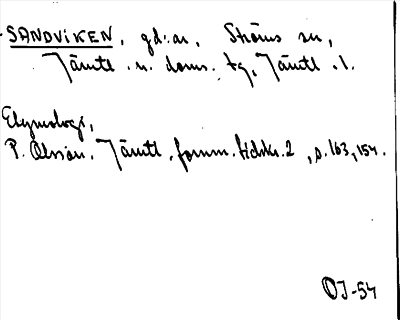 SANDVIKEN, gd:ar, Ströms sn,
Jämtl. n. doms. tg, Jämtl. l.
Etymologi,
P. Olsson. Jämtl. fornm. tidskr. 2, s. 163, 154.
OJ-54